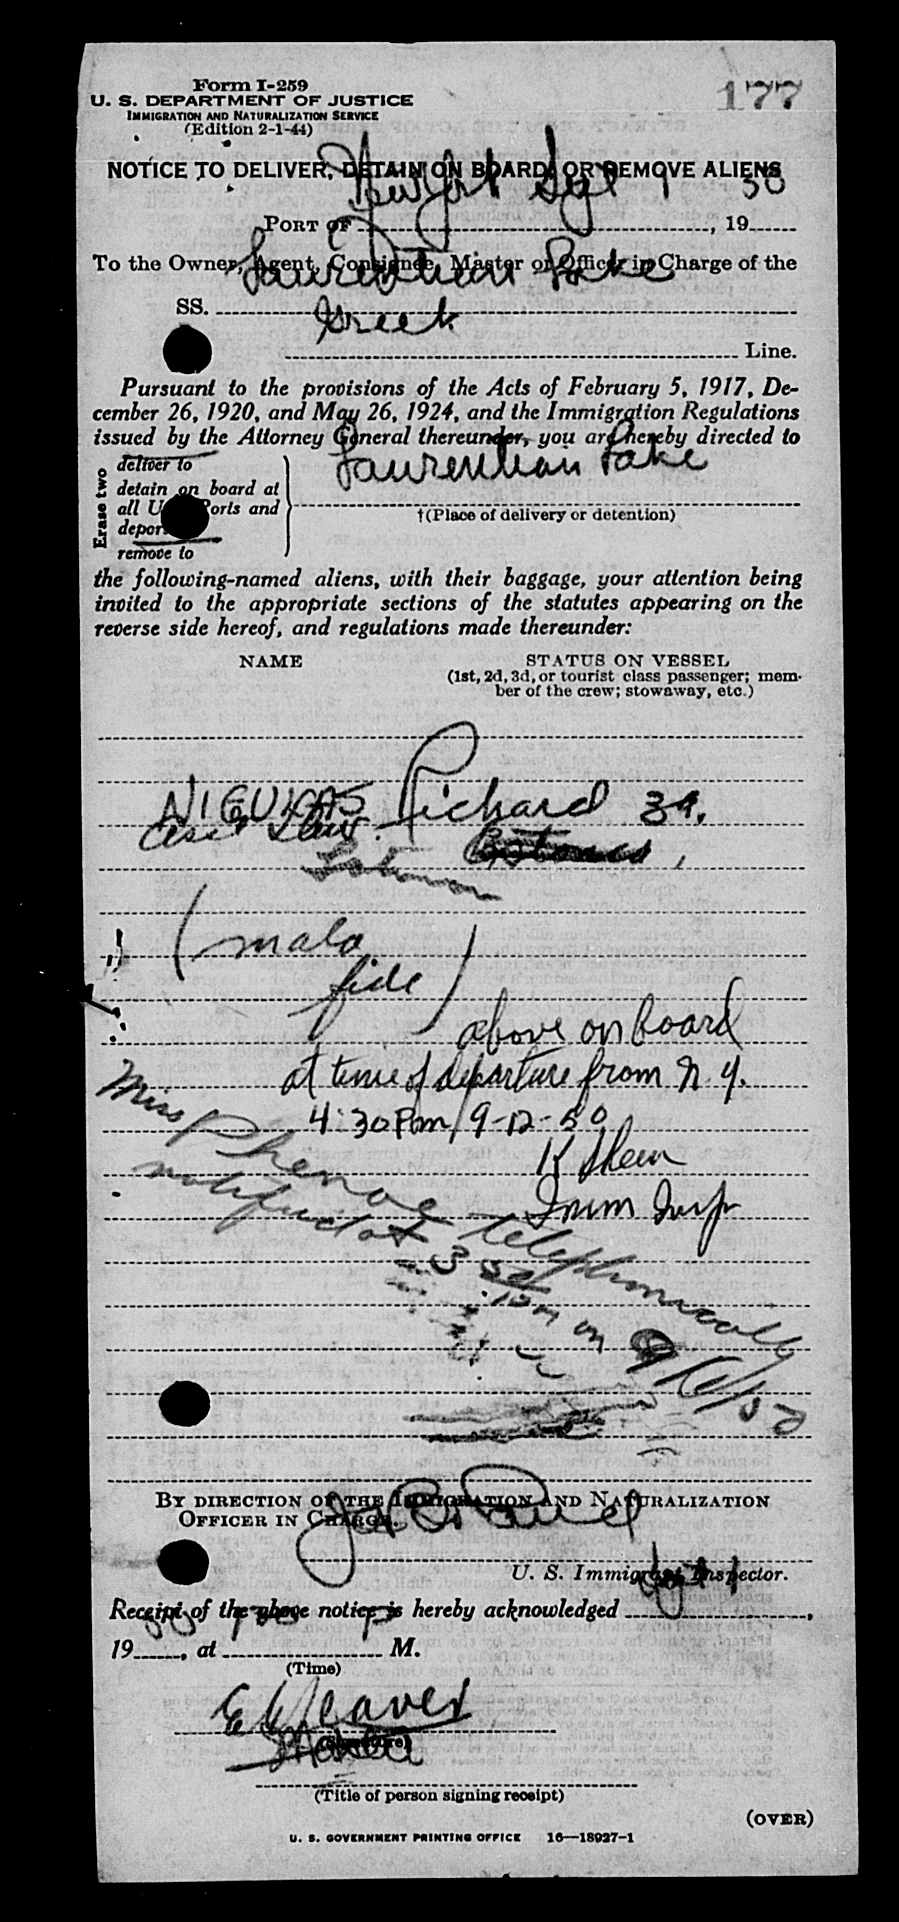 Form I-259
177
U. S. DEPARTMENT OF JUSTICE
IMMIGRATION AND NATURALIZATION SERVICE
(Edition 2-1-44)
NOTICE TO DELIVER, DETAIN ON BOARD, OR REMOVE ALIENS
New York Sept 1 50
PORT OF ........, 19......
To the Owner, Agent, Consignee, Master or Officer in Charge of the
Laurentian Lake
SS. ........
Greek
........ Line.
Pursuant to the provisions of the Acts of February 5, 1917, De-
cember 26, 1920, and May 26, 1924, and the Immigration Regulations
issued by the Attorney General thereunder, you are hereby directed to
Erase two
deliver to
detain on board at
all U. S. Ports and
deport
remove to
Laurentian Lake
†(Place of delivery or detention)
the following-named aliens, with their baggage, your attention being
invited to the appropriate sections of the statutes appearing on the
reverse side hereof, and regulations made thereunder:
NAME
STATUS ON VESSEL
(1st, 2d, 3d, or tourist class passenger; mem-
ber of the crew; stowaway, etc.)
Richard 39.
(mala
fide)
above on board
at time of departure from N.Y.
4:30 Pm 9-12-50
K Shean
Imm Insp
Miss
notified at 3
telephonically
pm on 9/1/50
BY DIRECTION OF THE IMMIGRATION AND NATURALIZATION
OFFICER IN CHARGE.
U. S. Immigrant Inspector.
Sept 1
Receipt of the above notice is hereby acknowledged ........,
50
19......, at ........ M.
(Time)
E Weaver
(Signature)
(Title of person signing receipt)
(OVER)
U. S. GOVERNMENT PRINTING OFFICE 16—18927-1